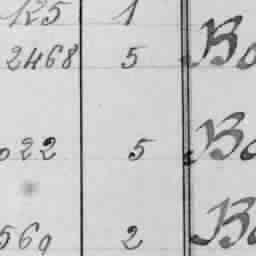 125 1
2468 5 Bo
022 5 Bo
569 2 Bo